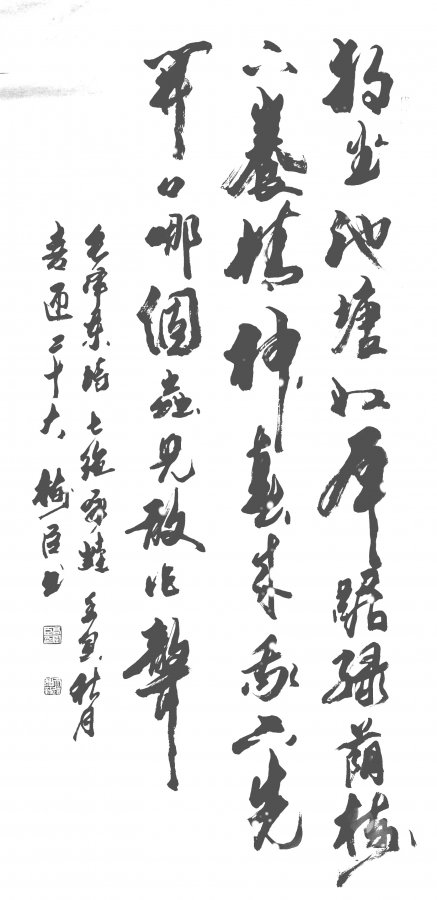 独坐池塘如虎踞绿荫树
下養精神春来我不先
開口哪個蟲児敢作聲
毛泽东诗七绝咏蛙 壬寅秋月
喜迎二十大 树臣书